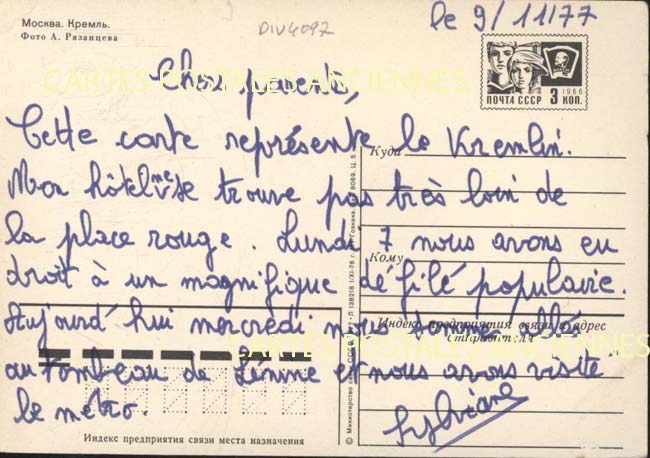 Москва. Кремль.
Фото А. Рязанцева
DIV4097
le 9/11/77
ПОЧТА СССР 3 КОП.
1966
CARTES POSTALES ANCIENNES
Chers parents,
Cette carte représente le Kremlin.
Куда
Mon hôtel ne se trouve pas très loin de
la place rouge. Lundi 7 nous avons eu
Кому
droit à un magnifique défilé populaire.
Aujourd'hui mercredi nous sommes allés
Индекс предприятия связи и адрес
отправителя
CARTES POSTALES ANCIENNES
au Tombeau de Lénine et nous avons visité
le métro.
Sylviane
Индекс предприятия связи места назначения
© Министерство связи СССР